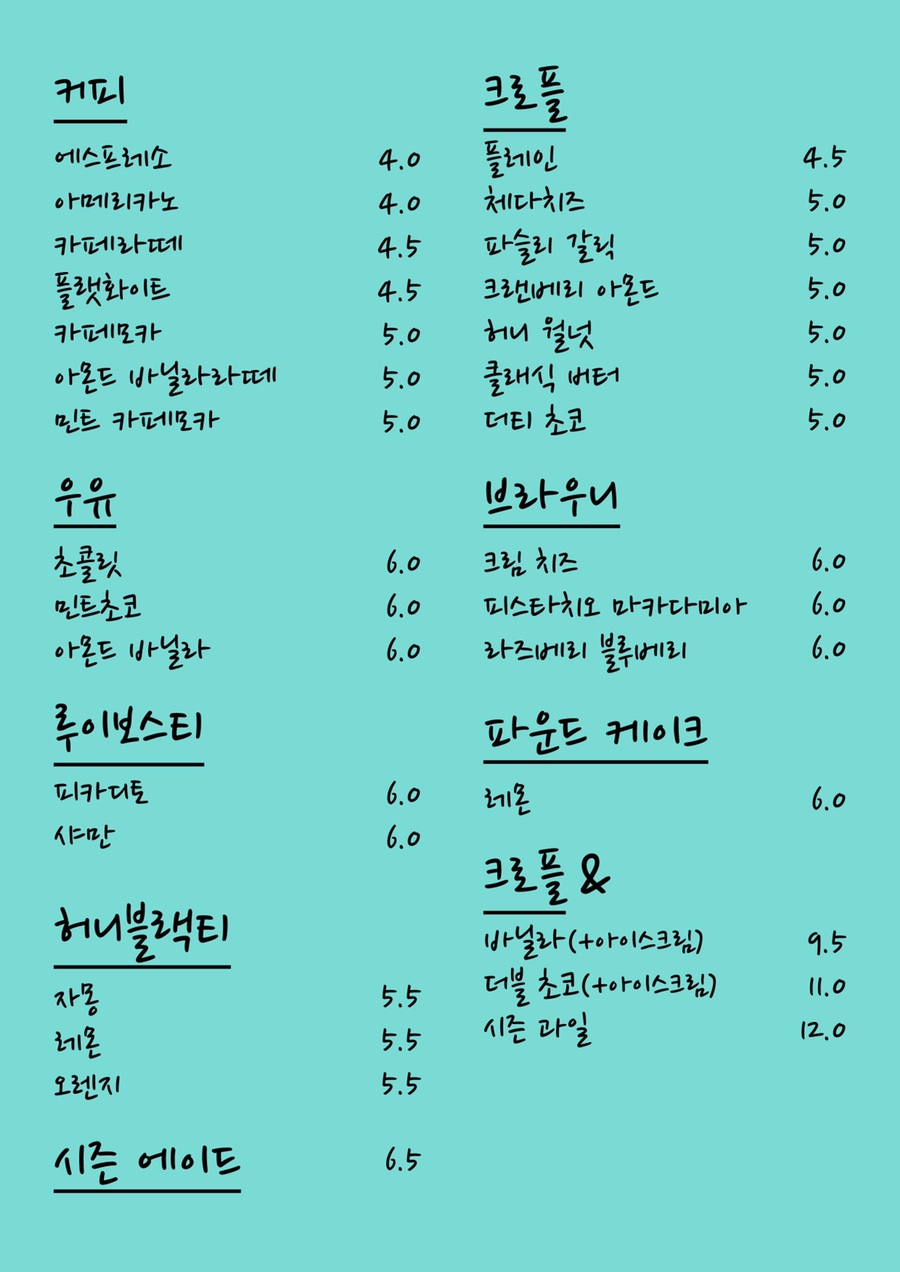 커피
에스프레소 4.0
아메리카노 4.0
카페라떼 4.5
플랫화이트 4.5
카페모카 5.0
아몬드 바닐라라떼 5.0
민트 카페모카 5.0
우유
초콜릿 6.0
민트초코 6.0
아몬드 바닐라 6.0
루이보스티
피카디토 6.0
샤만 6.0
허니블랙티
자몽 5.5
레몬 5.5
오렌지 5.5
시즌 에이드 6.5
크로플
플레인 4.5
체다치즈 5.0
파슬리 갈릭 5.0
크랜베리 아몬드 5.0
허니 월넛 5.0
클래식 버터 5.0
더티 초코 5.0
브라우니
크림 치즈 6.0
피스타치오 마카다미아 6.0
라즈베리 블루베리 6.0
파운드 케이크
레몬 6.0
크로플 &
바닐라(+아이스크림) 9.5
더블 초코(+아이스크림) 11.0
시즌 과일 12.0